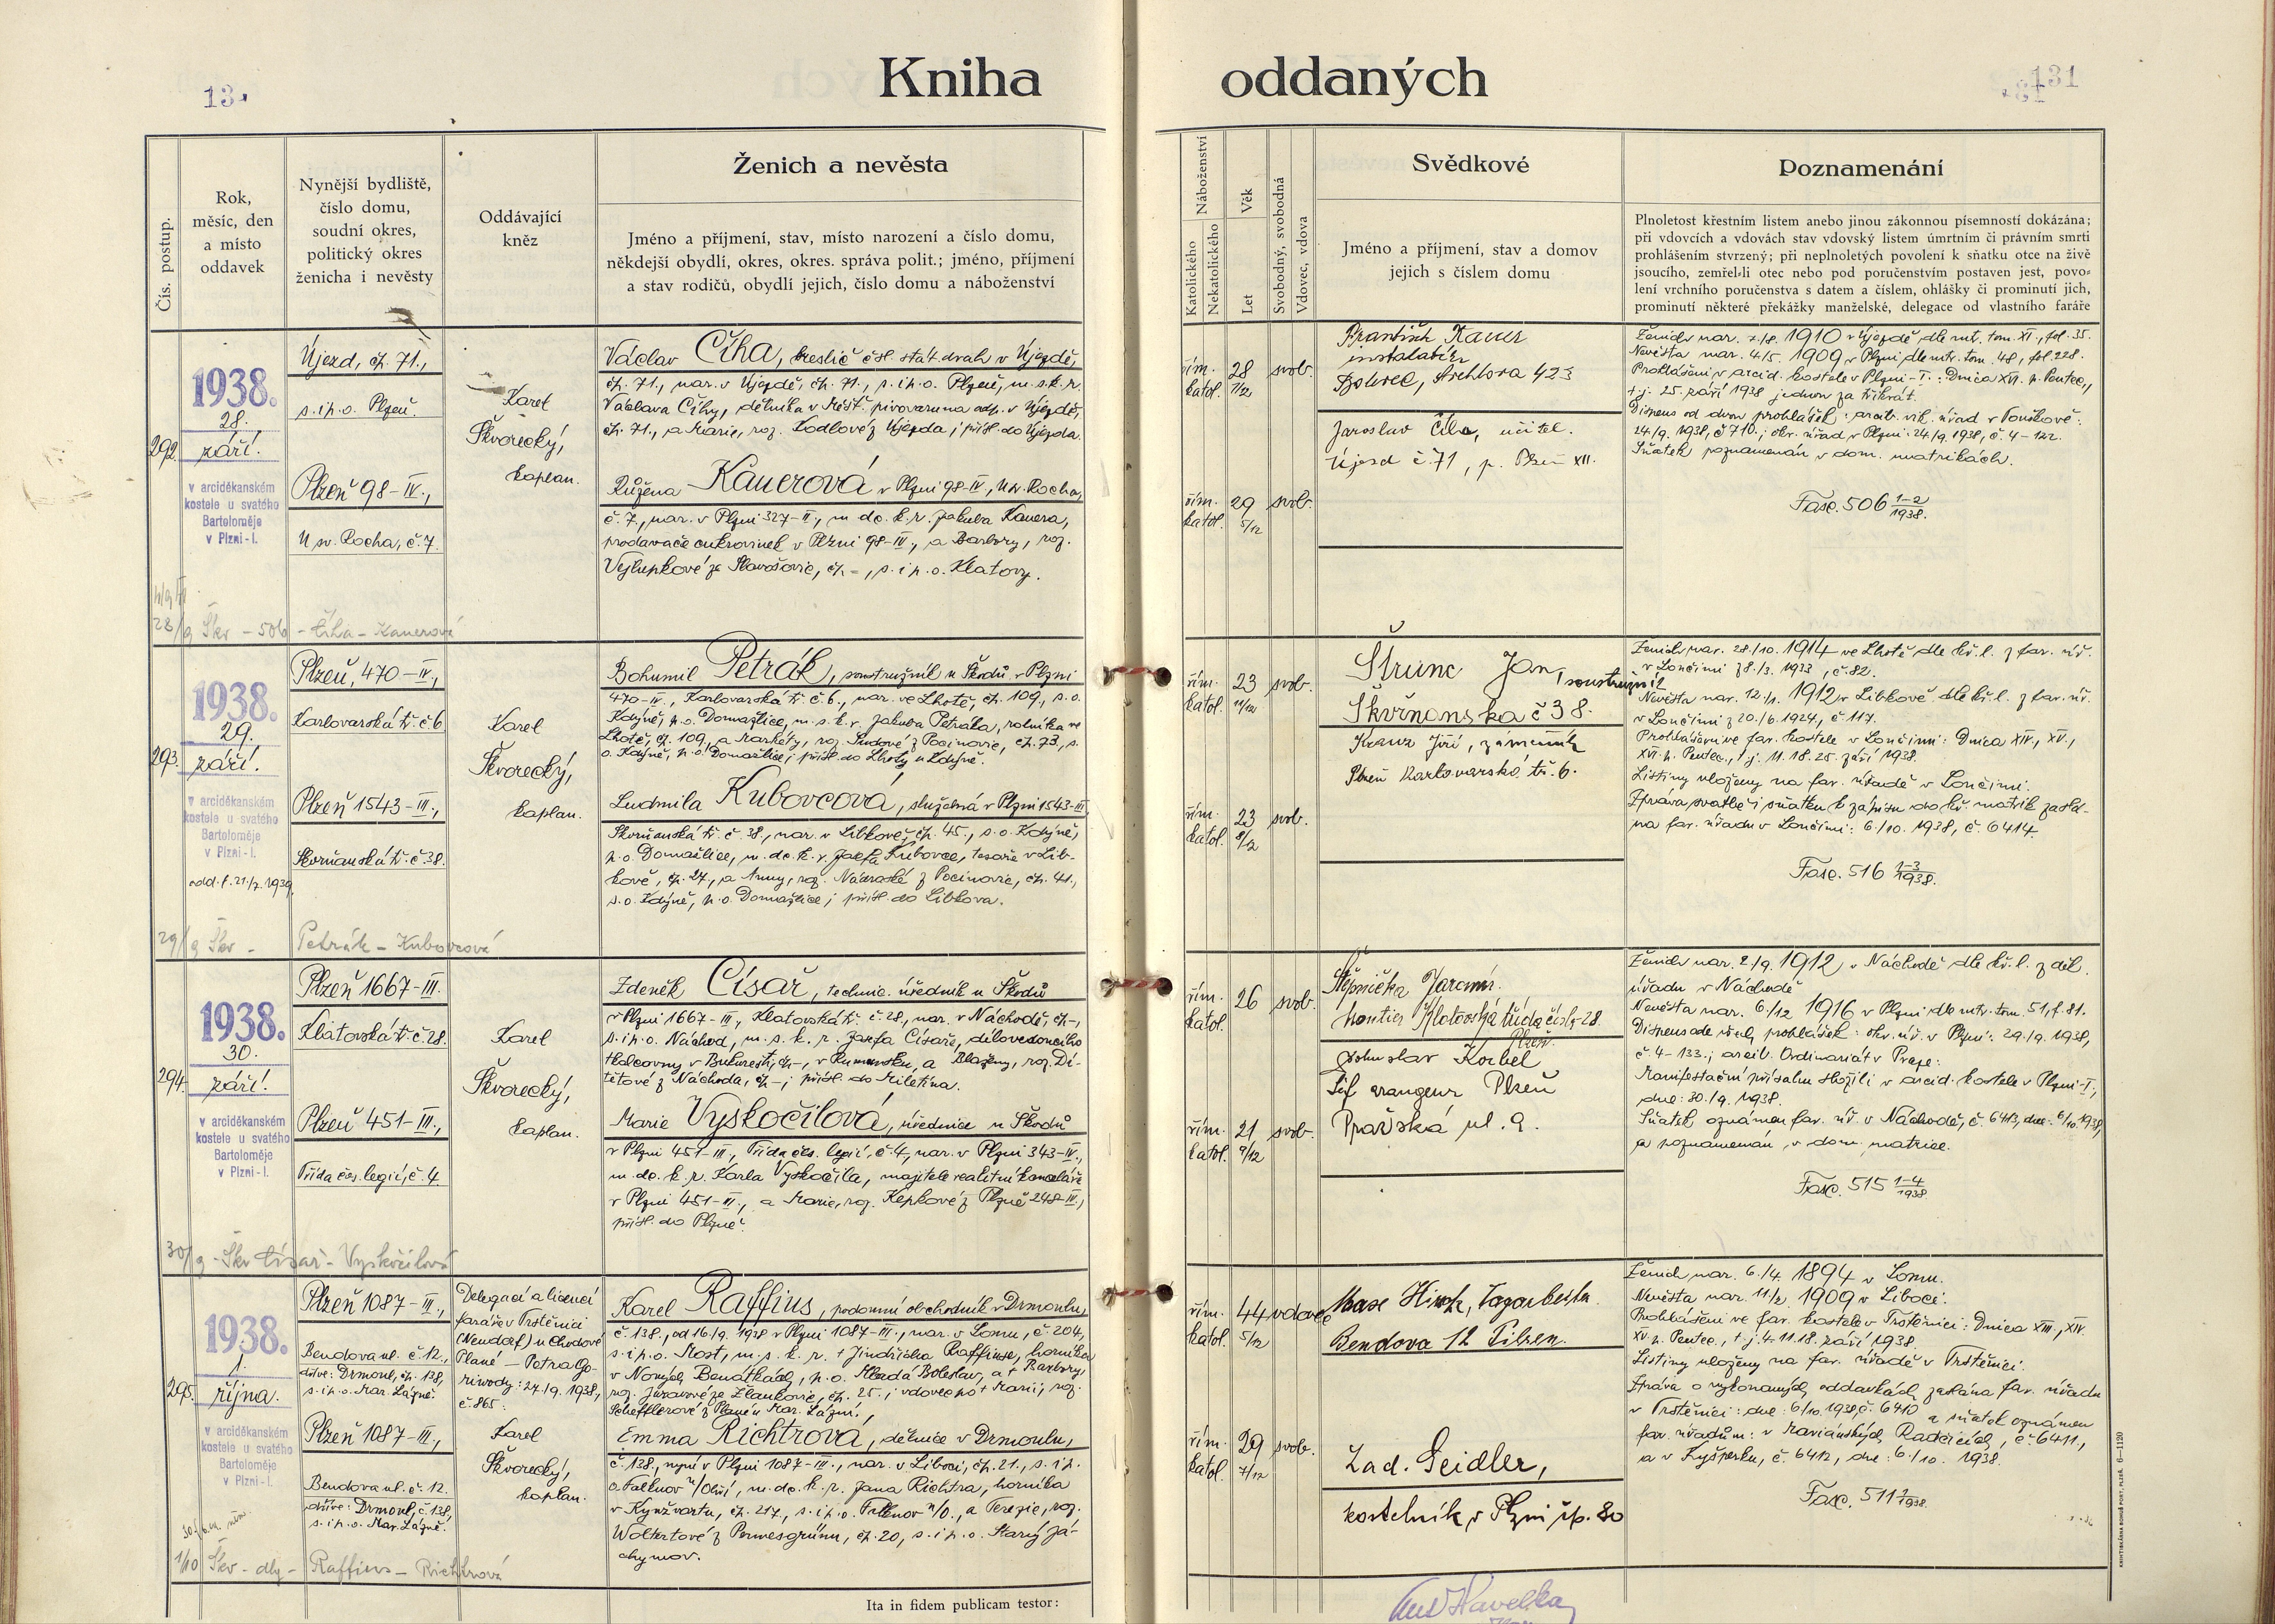 Kniha oddaných
131
Čís. postup.
Rok,
měsíc, den
a místo
oddavek
Nynější bydliště,
číslo domu,
soudní okres,
politický okres
ženicha i nevěsty
Oddávající
kněz
Ženich a nevěsta
Jméno a příjmení, stav, místo narození a číslo domu,
někdejší obydlí, okres, okres. správa polit.; jméno, příjmení
a stav rodičů, obydlí jejich, číslo domu a náboženství
Náboženství
Katolického
Nekatolického
Věk
Let
Svobodný, svobodná
Vdovec, vdova
Svědkové
Jméno a příjmení, stav a domov
jejich s číslem domu
Poznamenání
Plnoletost křestním listem anebo jinou zákonnou písemností dokázána;
při vdovcích a vdovách stav vdovský listem úmrtním či právním smrti
prohlášením stvrzený; při neplnoletých povolení k sňatku otce na živě
jsoucího, zemřel-li otec nebo pod poručenstvím postaven jest, povo-
lení vrchního poručenstva s datem a číslem, ohlášky či prominutí jich,
prominutí některé překážky manželské, delegace od vlastního faráře
292.
1938.
28.
září.
v arciděkanském
kostele u svatého
Bartoloměje
v Plzni-I.
Újezd, čp. 71.,
s. i p. o. Plzeň.
Plzeň 98-IV.,
U sv. Rocha, č. 7.
Karel
Škvorecký,
kaplan.
Václav Číha, kreslič čsl. stát. drah v Újezdě,
čp. 71., nar. v Újezdě, čp. 71., s. i p. o. Plzeň, m. s. k. r.
Václava Číhy, dělníka v Měšť. pivovaru na odp. v Újezdě,
čp. 71., a Marie, roz. Kodlové z Újezda; přísl. do Újezda.
Růžena Kauerová v Plzni 98-IV., U sv. Rocha,
č. 7., nar. v Plzni 327-II., m. dc. k. r. Jakuba Kauera,
prodavače cukrovinek v Plzni 98-IV., a Barbory, roz.
Vejlupkové ze Slavošovic, čp. -, s. i p. o. Klatovy.
řím. katol. 28 7/12 svob.
řím. katol. 29 5/12 svob.
František Kauer
instalatér
Bolevec, 423
Jaroslav Číha, učitel.
Újezd č. 71, p. Plzeň XII.
Ženich nar. 7./8. 1910 v Újezdě dle mt. tom. XI., fol. 35.
Nevěsta nar. 4/5. 1909 v Plzni, dle mtr. tom. 48, fol. 228.
Prohlášeni v arcid. kostele v Plzni-I.: Dnica XVI. p. Pentec.,
t. j. 25. září 1938 jednou za třikrát.
Dispens od dvou prohlášek: arcib. vik. úřad v Touškově:
24./9. 1938, č. 710.; okr. úřad v Plzni: 24./9. 1938, č. 4-122.
Sňatek poznamenán v dom. matrikách.
Fasc. 506 1-2/1938.
28/9 Škv - 506 - Číha - Kauerová
293.
1938.
29.
září.
v arciděkanském
kostele u svatého
Bartoloměje
v Plzni-I.
odd. l. 21./7. 1939.
Plzeň, 470-IV.,
Karlovarská tř. č. 6.
Plzeň 1543-III.,
Skvrňanská tř. č. 38.
Karel
Škvorecký,
kaplan.
Bohumil Petrák, soustružník u Škodů v Plzni
470-IV., Karlovarská tř. č. 6., nar. ve Lhotě, čp. 109., s. o.
Kdyně, p. o. Domažlice, m. s. k. r. Jakuba Petráka, rolníka ve
Lhotě, čp. 109, a Markéty, roz. Dudové z Pocinovic, čp. 73., s.
o. Kdyně, p. o. Domažlice; přísl. do Lhoty u Kdyně.
Ludmila Kubovcová, služebná v Plzni 1543-III.,
Skvrňanská tř. č. 38., nar. v Libkově, čp. 45., s. o. Kdyně,
p. o. Domažlice, m. dc. k. r. Josefa Kubovce, tesaře v Lib-
kově, čp. 27., a Anny, roz. Nádraské z Pocinovic, čp. 41.,
s. o. Kdyně, p. o. Domažlice; přísl. do Libkova.
řím. katol. 23 11/12 svob.
řím. katol. 23 8/12 svob.
Štrunc Jan, soustružník
Škvrňanska č 38.
Kranz Jiří, zámečník
Plzeň Karlovarská tř. 6.
Ženich nar. 28./10. 1914 ve Lhotě dle kř. l. z far. úř.
v Loučimi z 8./3. 1933, č. 82.
Nevěsta nar. 12./1. 1912 v Libkově dle kř. l. z far. úř.
v Loučimi z 20./6. 1924, č. 117.
Prohlášeni ve far. kostele v Loučimi: Dnica XIV., XV.,
XVI. p. Pentec., t. j. 11. 18. 25. září 1938.
Listiny uloženy na far. úřadě v Loučimi.
Zpráva svatbě i sňatku k zápisu do kř. matrik zaslá-
na far. úřadu v Loučimi: 6./10. 1938, č. 6414.
Fasc. 516 1-3/1938.
29/9 Škv - Petrák - Kubovcová
294.
1938.
30.
září.
v arciděkanském
kostele u svatého
Bartoloměje
v Plzni-I.
Plzeň 1667-III.
Klatovská tř. č. 28.
Plzeň 451-III.,
Třída čes. legií, č. 4.
Karel
Škvorecký,
kaplan.
Zdeněk Císař, technic. úředník u Škodů
v Plzni 1667-III., Klatovská tř. č. 28., nar. v Náchodě, čp. -,
s. i p. o. Náchod, m. s. k. r. Josefa Císaře, dílovedoucího
tkalcovny v Bukurešti, čp. -, v Rumunsku, a Blaženy, roz. Di-
tětové z Náchoda, čp. -; přísl. do Miletína.
Marie Vyskočilová, úřednice u Škodů
v Plzni 451-III., Třída čes. legií, č. 4., nar. v Plzni 343-IV.,
m. dc. k. r. Karla Vyskočila, majitele realitní kanceláře
v Plzni 451-III., a Marie, roz. Kepkové z Plzně 248-IV.,
přísl. do Plzně.
řím. katol. 26 svob.
řím. katol. 21 9/12 svob.
Štěpnička Jaromír
montér Klatovská třída číslo 28.
Plzeň.
Bohuslav Korbel
šéf arangeur Plzeň
Pražská ul. 9.
Ženich nar. 2./9. 1912 v Náchodě dle kř. l. z děk.
úřadu v Náchodě
Nevěsta nar. 6./12. 1916 v Plzni dle mtr. tom. 51, f. 81.
Dispens ode všech prohlášek: okr. úř. v Plzni: 29./9. 1938,
č. 4-133.; arcib. Ordinariát v Praze:
Manifestační přísahu složili v arcid. kostele v Plzni-I.,
dne: 30./9. 1938.
Sňatek oznámen far. úř. v Náchodě, č. 6413, dne: 6/10. 1938,
a poznamenán v dom. matrice.
Fasc. 515 1-4/1938
30/9 - Škv Císař - Vyskočilová
295.
1938.
1.
října.
v arciděkanském
kostele u svatého
Bartoloměje
v Plzni-I.
Plzeň 1087-III.,
Bendova ul. č. 12.,
dříve: Drmoul, čp. 138,
s. i p. o. Mar. Lázně.
Plzeň 1087-III.,
Bendova ul. č. 12.
dříve: Drmoul, č. 138,
s. i p. o. Mar. Lázně.
Delegací a licencí
faráře v Trstěnici
(Neudorf) u Chodové
Plané - Petra Go-
riwody: 27./9. 1938,
č. 865.
Karel
Škvorecký,
kaplan.
Karel Raffius, podomní obchodník v Drmoulu,
č. 138., od 16./9. 1938 v Plzni 1087-III., nar. v Lomu, č. 204,
s. i p. o. Most, m. s. k. r. † Jindřicha Raffiuse, horníka
v Nových Benátkách, p. o. Mladá Boleslav, a † Barbory,
roz. Júravové ze Zlaukovic, čp. 25.; vdovec po † Marii, roz.
Schefflerové z Plané u Mar. Lázní.
Emma Richtrová, dělnice v Drmoulu,
č. 138., nyní v Plzni 1087-III., nar. v Liboci, čp. 21., s. i p.
o. Falknov n/Ohří, m. dc. k. r. Jana Richtra, horníka
v Kynžvartu, čp. 217, s. i p. o. Falknov n/O., a Terezie, roz.
Woltertové z Permesgrünu, čp. 20, s. i p. o. Starý Já-
chymov.
řím. katol. 44 5/12 vdovec
řím. katol. 29 7/12 svob.
Max Hirch,
Bendova 12 Pilsen.
Lad. Seidler,
kostelník v Plzni čp. 80
Ženich nar. 6./4. 1894 v Lomu.
Nevěsta nar. 11/2. 1909 v Liboci.
Prohlášeni ve far. kostele v Trstěnici: Dnica XIII., XIV.
XV. p. Pentec., t. j. 4. 11. 18. září 1938.
Listiny uloženy na far. úřadě v Trstěnici.
Zpráva o vykonaných oddavkách zaslána far. úřadu
v Trstěnici: dne: 6/10. 1938, č. 6410 a sňatek oznámen
far. úřadům: v Mariánských Radčicích, č. 6411,
a v Kyšperku, č. 6412, dne: 6./10. 1938.
Fasc. 511
1/10 Škv - dlg - Raffius - Richtrová
Ita in fidem publicam testor:
Havelka